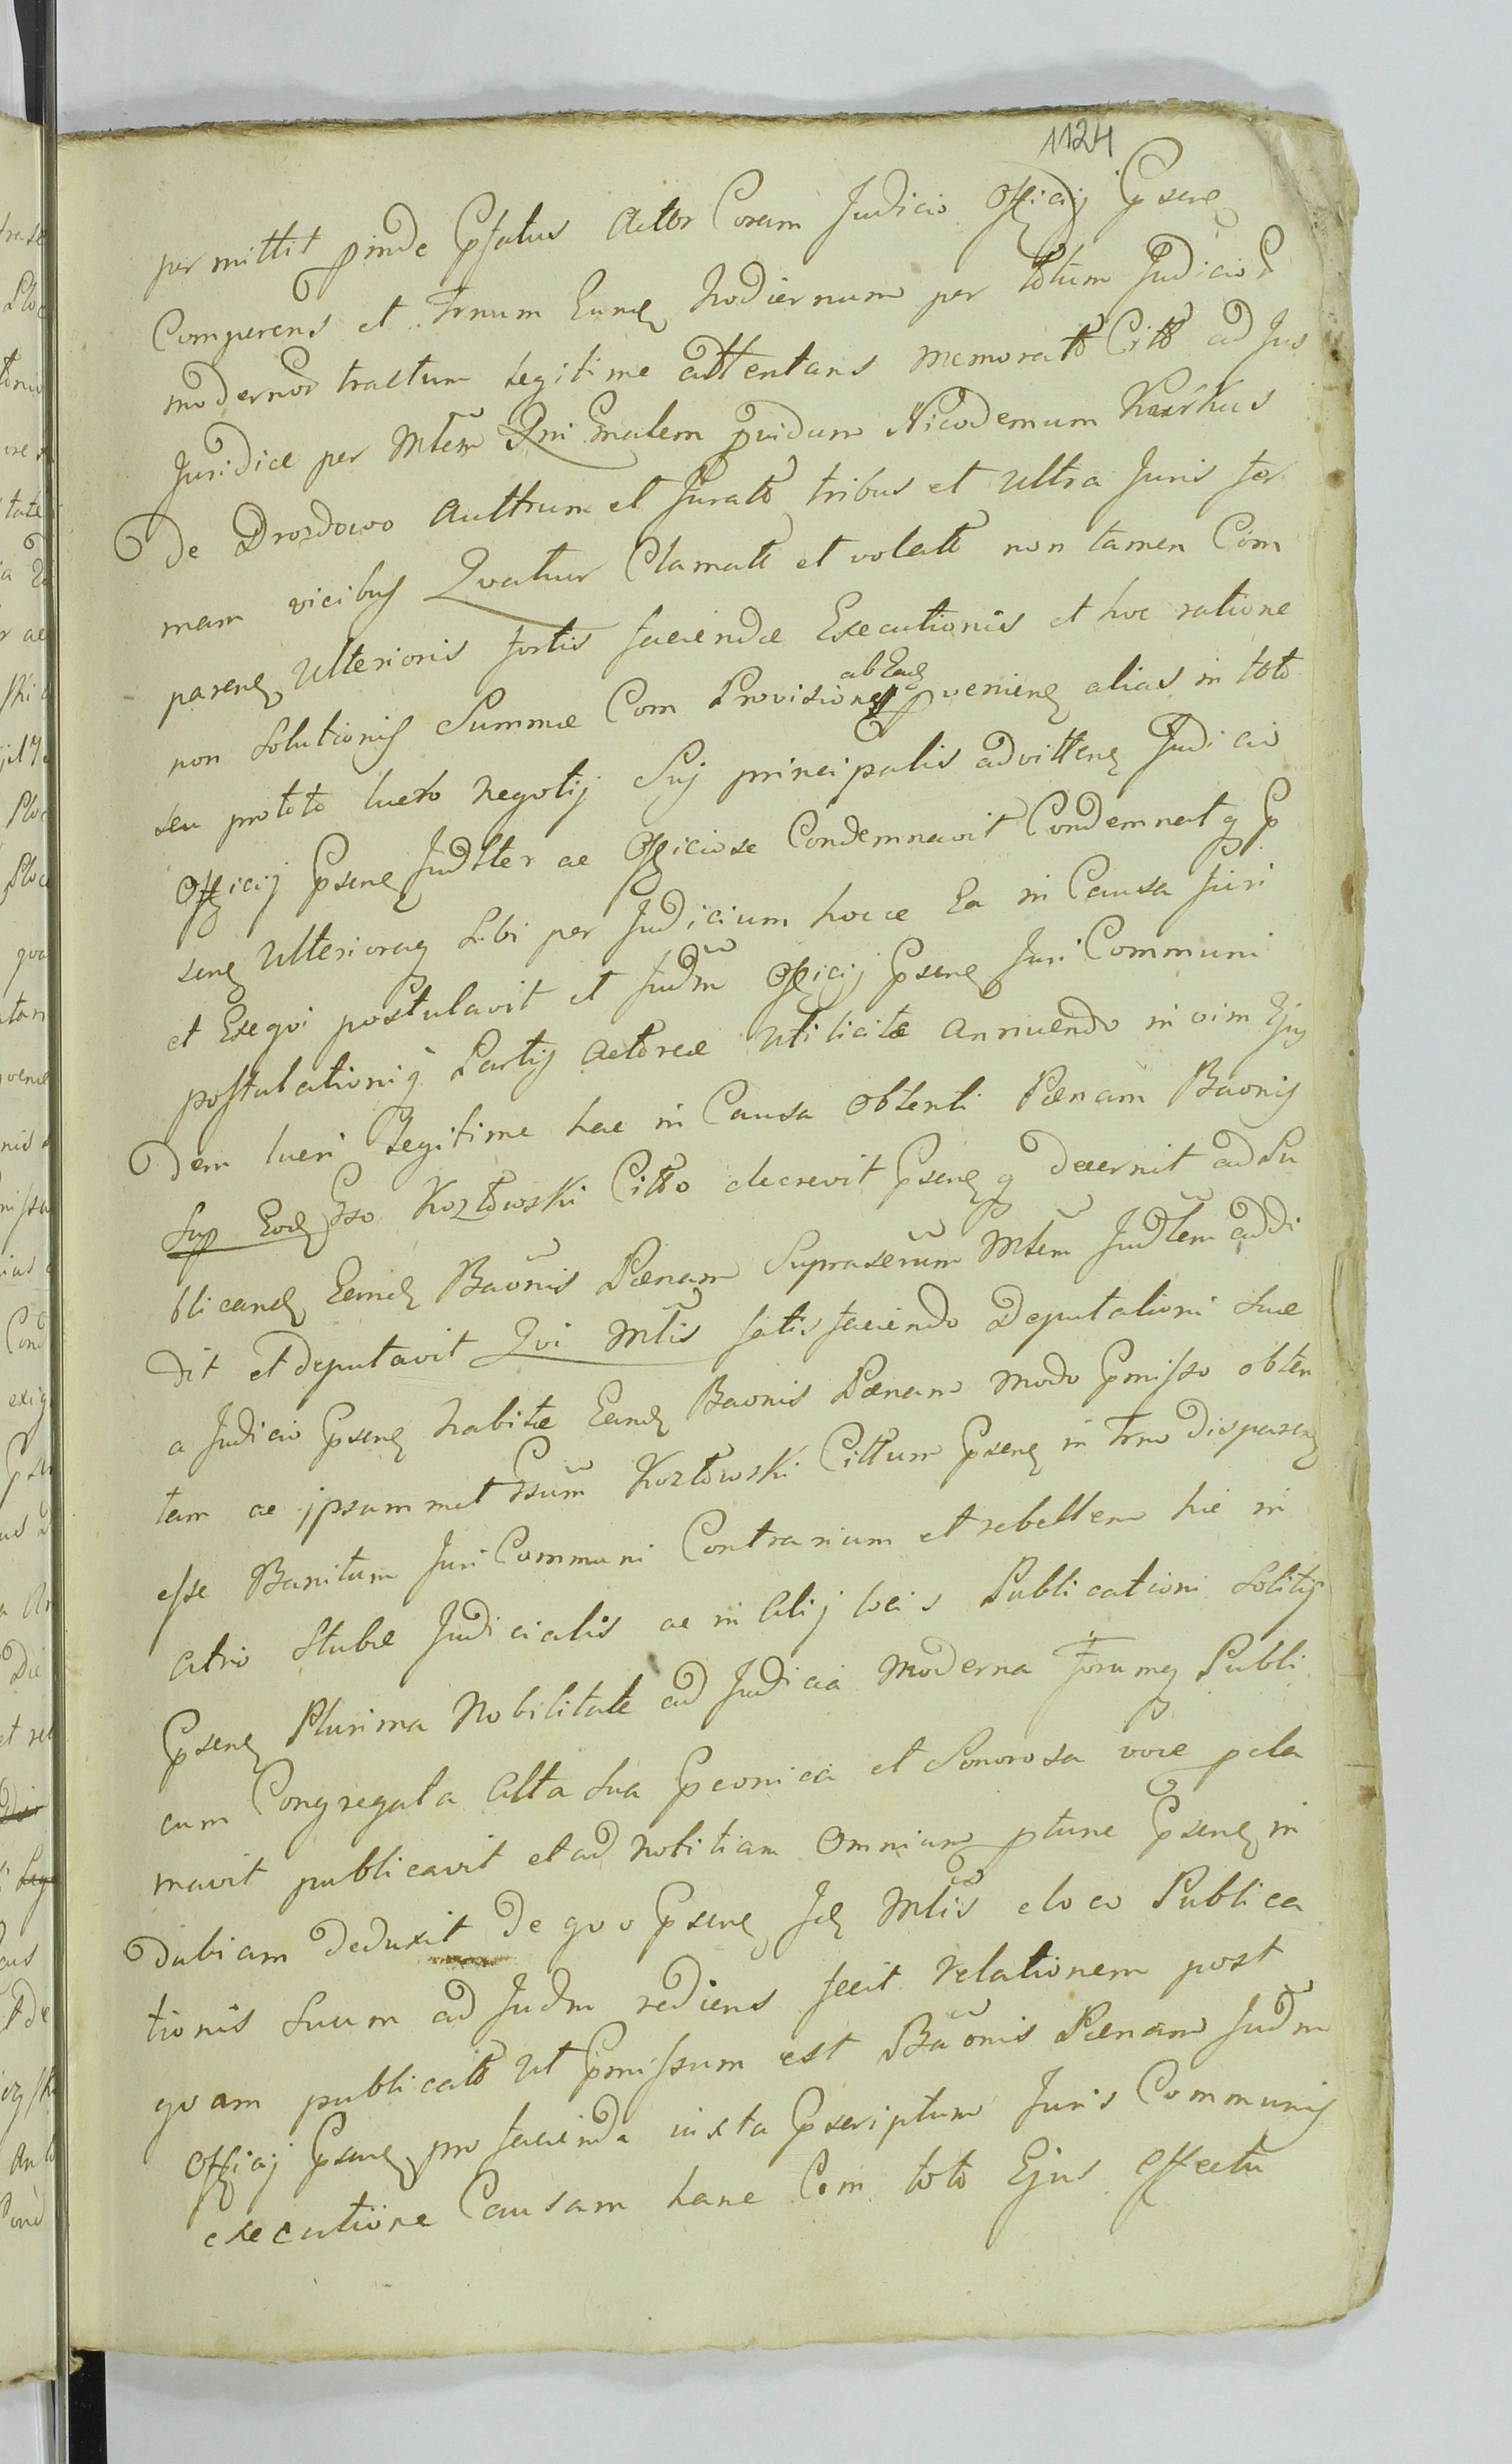 1124
per mittit pinde Pfatus Actor Coram Judicio Officij Psenq
Comparens et Trnum Eunq hodiernum per totum Judicior
modernor tractum legitime attentans memorato Citto ad Jus
Juridice per Mtem Rni Gnalem pvidum Nicodemum Kurkus
De Drozdowo Auttrum et Jurato tribus et ultra Juris for
mam vicibus Qvatuor Clamato et volato non tamen Com
parenq Ulterioris fortis faciendæ Executionis et hoc ratione
non Solutionis Summæ Com Provisione ab Eadq pvenienq alias in toto
seu pro toto lucro negotij Suj principalis advittenq Judicio
Officij Psenq Judlter ac Officiose Condemnavit Condemnatq P
senq Ulterioraq Sibi per Judicium hocce Ea in Causa Juri
et Exeqvi postulavit et Judm Officij Psenq Juri Communi
postulationiq Partis Actoreæ Utilicitæ annuendo in vim Ejus
Dem lucri Legitime hac in Causa obtenti Pænam Baonis
Sup Eodq Gso Kozłowski Citto decrevit Psenq q decernit ad Pu
blicandq Eandq Baonis Pænam Suprascrum Mtem Judlem addi
dit et deputavit Qvi Mtis satis faciendo Deputationi Suæ
a Judicio Psenq habitæ Eandq Baonis Pænam modo Pmisso obten
tam ac ipsummet Gsum Kozłowski Cittum Psenq in Trno Disparenq
esse Banitum Juri Communi Contrarium et rebellem hic in
atrio Stubæ Judicialis ac in Alij locis Publicationi Solitis
Psenq Plurima Nobilitate ad Judicia Moderna Forumq Publi
cum Congregata Alta Sua Pconica et Sonorosa voce pcla
mavit publicavit et ad notitiam Omnium ptunc Psenq in
Dubiam deduxit De qvo Psenq Jdq Mtis eloco Publica
tionis Suum ad Judm rediens fecit relationem post
qvam publicato ut Pmissum est Baonis Pænam Judm
Officij Psenq pro facienda iuxta Pscriptum Juris Communis
executione Causam hanc Com toto Ejus effectu